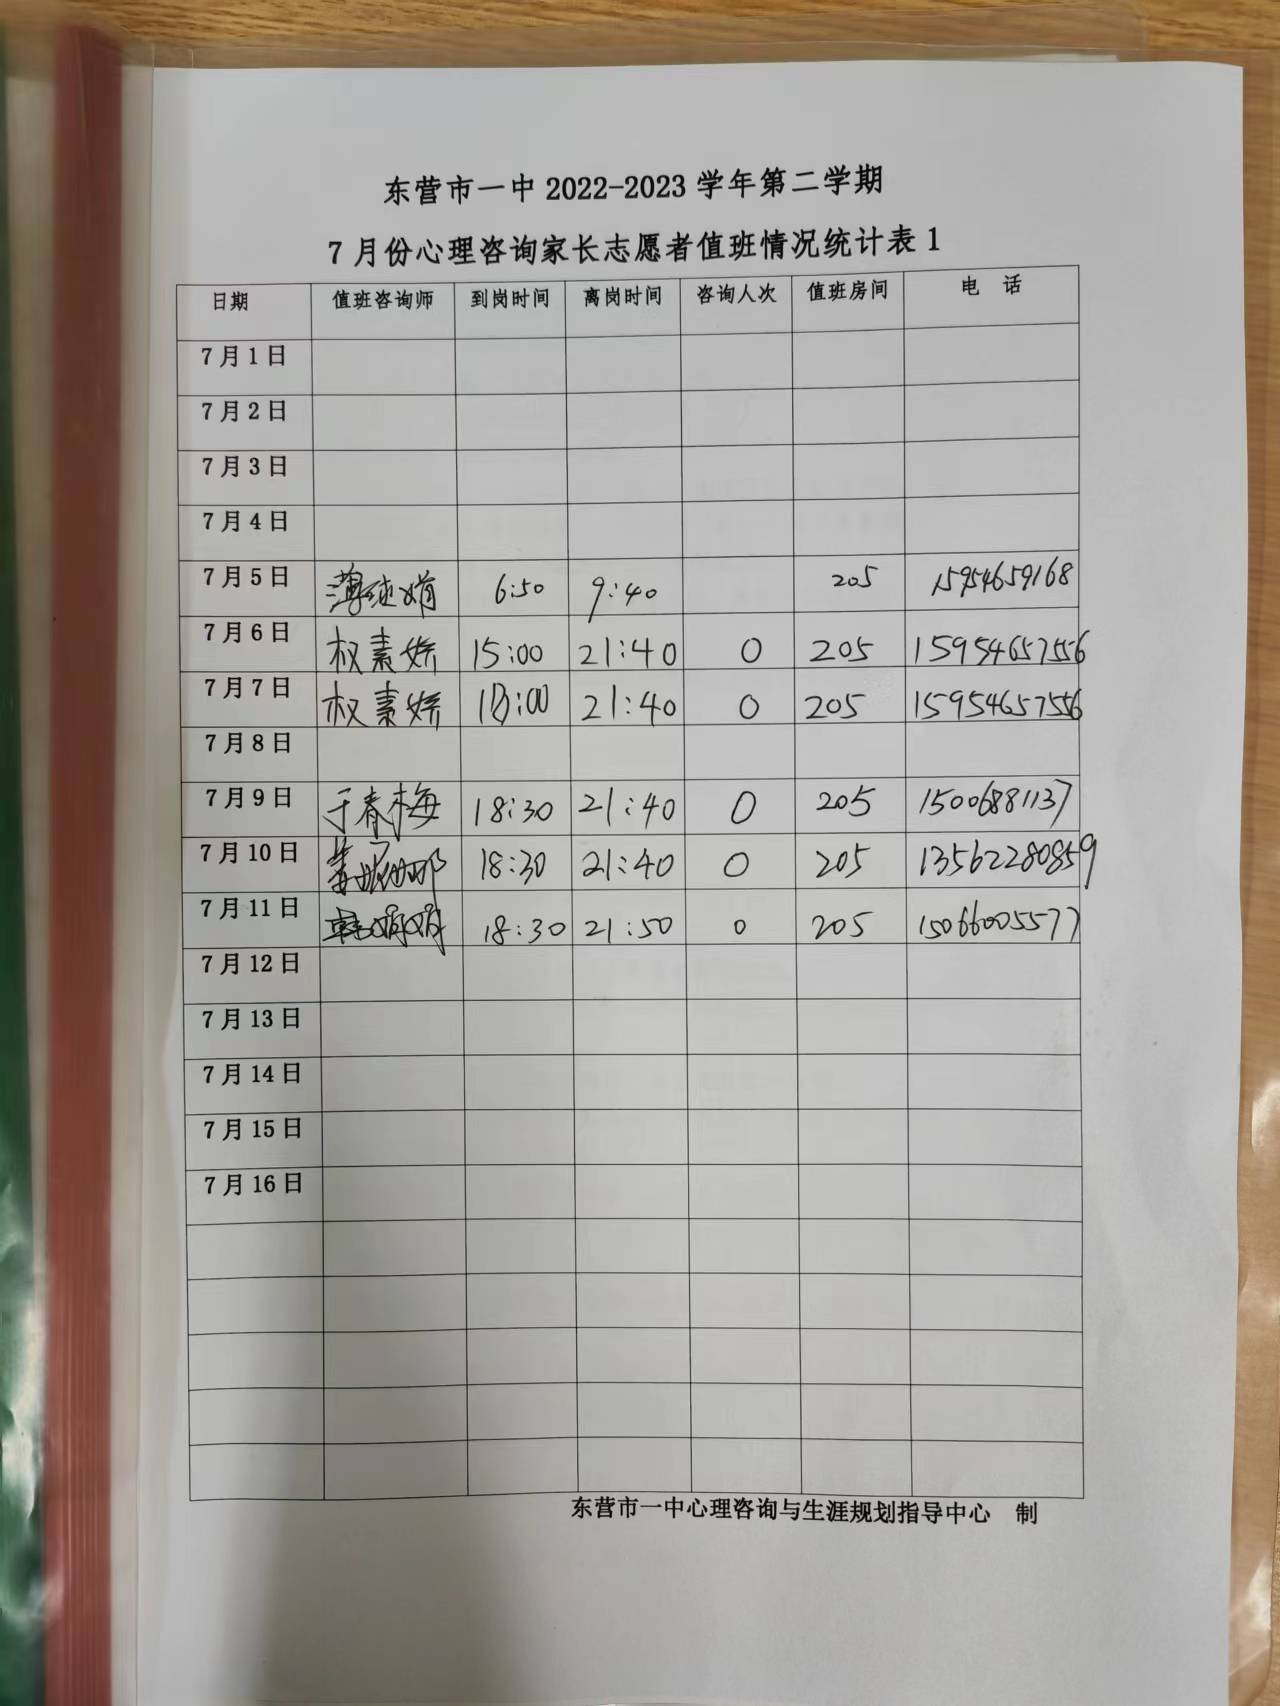 东营市一中 2022-2023 学年第二学期
7 月份心理咨询家长志愿者值班情况统计表 1
日期 值班咨询师 到岗时间 离岗时间 咨询人次 值班房间 电 话
7 月 1 日
7 月 2 日
7 月 3 日
7 月 4 日
7 月 5 日 6:50 9:40 205 15954659168
7 月 6 日 权素娇 15:00 21:40 0 205 15954657556
7 月 7 日 权素娇 21:40 0 205 15954657556
7 月 8 日
7 月 9 日 于春梅 18:30 21:40 0 205 15006881137
7 月 10 日 18:30 21:40 0 205 13562280859
7 月 11 日 韩娟娟 18:30 21:50 0 205 15066005577
7 月 12 日
7 月 13 日
7 月 14 日
7 月 15 日
7 月 16 日
东营市一中心理咨询与生涯规划指导中心 制